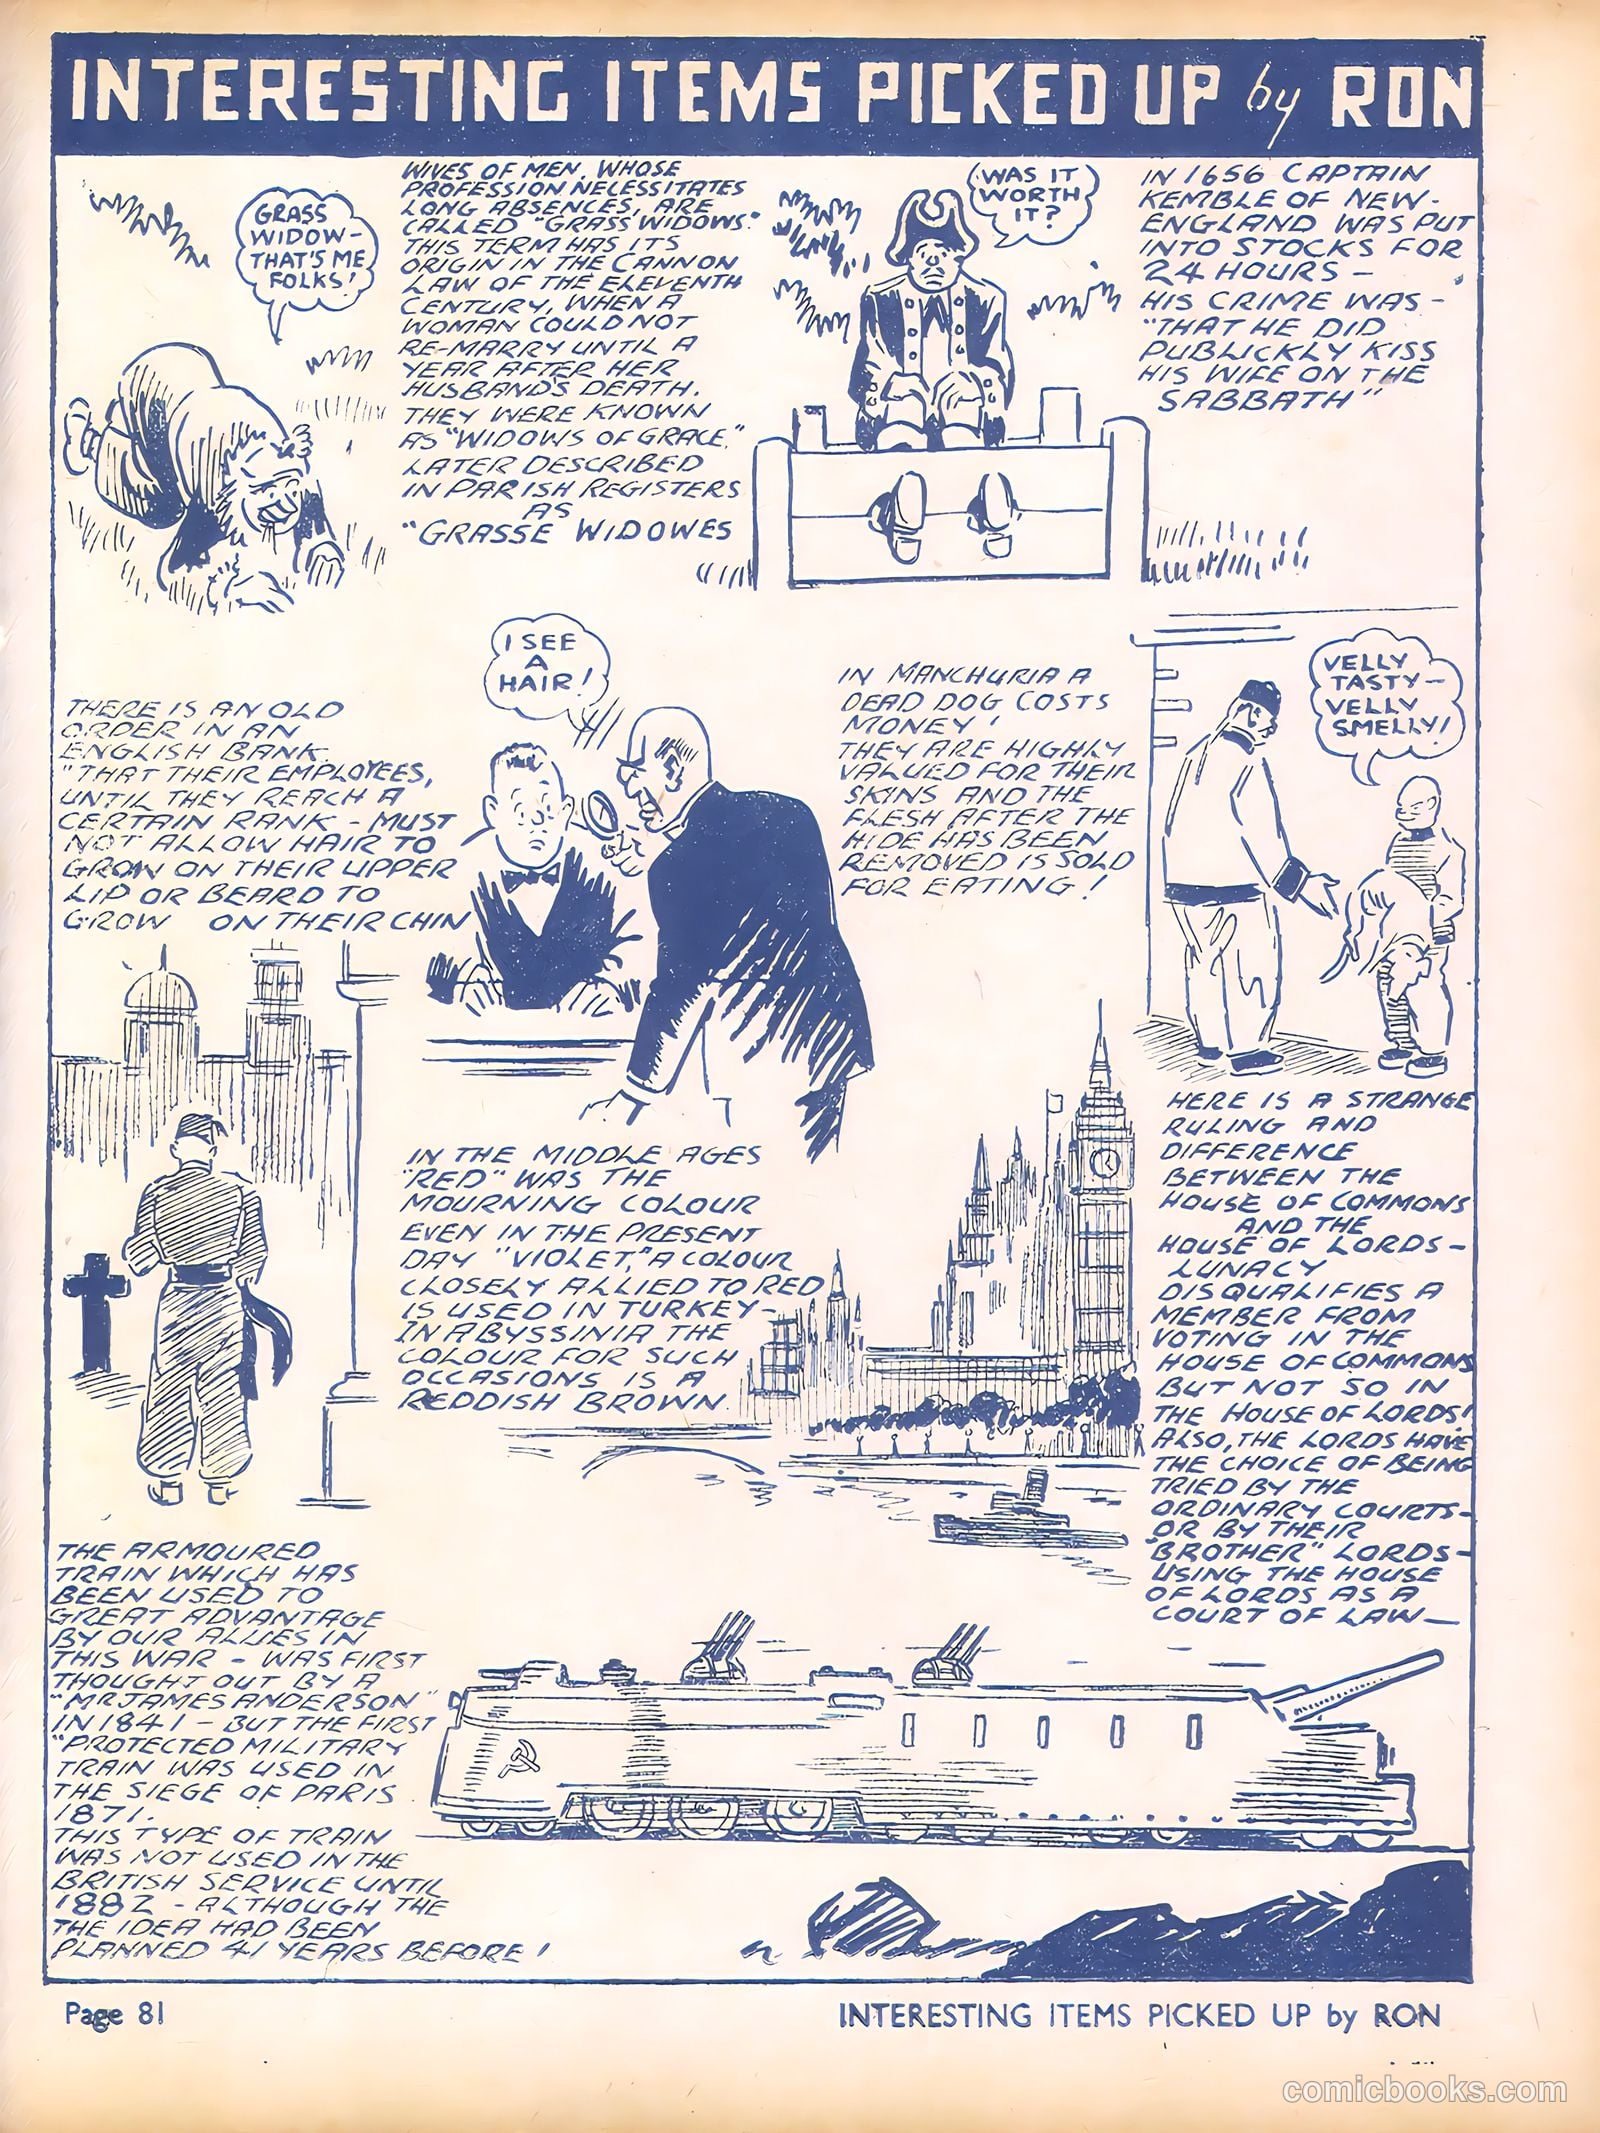 INTERESTING ITEMS PICKED UP by RON
GRASS
WIDOW-
THAT'S ME
FOLKS!
WIVES OF MEN, WHOSE
PROFESSION NECESSITATES
LONG ABSENCES, ARE
CALLED "GRASS WIDOWS."
THIS TERM HAS ITS
ORIGIN IN THE CANNON
LAW OF THE ELEVENTH
CENTURY, WHEN A
WOMAN COULD NOT
RE-MARRY UNTIL A
YEAR AFTER HER
HUSBAND'S DEATH.
THEY WERE KNOWN
AS "WIDOWS OF GRACE."
LATER DESCRIBED
IN PARISH REGISTERS
AS
"GRASSE WIDOWES
WAS IT
WORTH
IT?
IN 1656 CAPTAIN
KEMBLE OF NEW-
ENGLAND WAS PUT
INTO STOCKS FOR
24 HOURS -
HIS CRIME WAS -
"THAT HE DID
PUBLICKLY KISS
HIS WIFE ON THE
SABBATH"
THERE IS AN OLD
ORDER IN AN
ENGLISH BANK.
"THAT THEIR EMPLOYEES,
UNTIL THEY REACH A
CERTAIN RANK - MUST
NOT ALLOW HAIR TO
GROW ON THEIR UPPER
LIP OR BEARD TO
GROW ON THEIR CHIN
I SEE
A
HAIR!
IN MANCHURIA A
DEAD DOG COSTS
MONEY!
THEY ARE HIGHLY
VALUED FOR THEIR
SKINS AND THE
FLESH AFTER THE
HIDE HAS BEEN
REMOVED IS SOLD
FOR EATING!
VELLY
TASTY-
VELLY
SMELLY!
IN THE MIDDLE AGES
"RED" WAS THE
MOURNING COLOUR
EVEN IN THE PRESENT
DAY "VIOLET," A COLOUR
CLOSELY ALLIED TO RED
IS USED IN TURKEY-
IN ABYSSINIA THE
COLOUR FOR SUCH
OCCASIONS IS A
REDDISH BROWN.
HERE IS A STRANGE
RULING AND
DIFFERENCE
BETWEEN THE
HOUSE OF COMMONS
AND THE
HOUSE OF LORDS -
LUNACY
DISQUALIFIES A
MEMBER FROM
VOTING IN THE
HOUSE OF COMMONS
BUT NOT SO IN
THE HOUSE OF LORDS!
ALSO, THE LORDS HAVE
THE CHOICE OF BEING
TRIED BY THE
ORDINARY COURTS-
OR BY THEIR
"BROTHER" LORDS-
USING THE HOUSE
OF LORDS AS A
COURT OF LAW-
THE ARMOURED
TRAIN WHICH HAS
BEEN USED TO
GREAT ADVANTAGE
BY OUR ALLIES IN
THIS WAR - WAS FIRST
THOUGHT OUT BY A
"MR JAMES ANDERSON"
IN 1841 - BUT THE FIRST
"PROTECTED MILITARY
TRAIN WAS USED IN
THE SIEGE OF PARIS
1871.
THIS TYPE OF TRAIN
WAS NOT USED IN THE
BRITISH SERVICE UNTIL
1882 - ALTHOUGH THE
THE IDEA HAD BEEN
PLANNED 41 YEARS BEFORE!
Page 81
INTERESTING ITEMS PICKED UP by RON
comicbooks.com